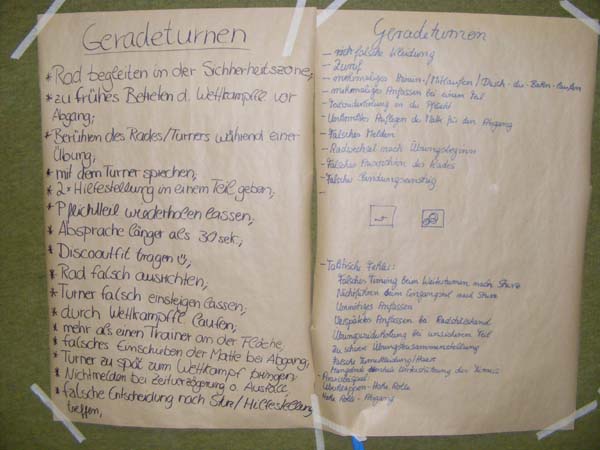 Geradeturnen
* Rad begleiten in der Sichherheitszone;
* zu frühes Betreten d. Wettkampffl. vor
Abgang;
* Berühren des Rades/Turners während einer
Übung;
* mit dem Turner sprechen;
* 2x Hilfestellung in einem Teil geben;
* Pflichtteil wiederholen lassen;
* Absprache länger als 30 sek;
* Discooutfit tragen
Rad falsch ausrichten;
* Turner falsch einsteigen lassen;
* durch Wettkampffl. laufen;
* mehr als einen Trainer an der Fläche
* falsches Einschuben der Matte bei Abgang;
* Turner zu spät zum Wettkampf bringen
* Nichtmelden bei Zeitverzögerung o. Ausfälle
* falsche Entscheidung nach Sturz/Hilfestellung
treffen,
Geradeturnen
- falsche Kleidung
- Zuruf
- mehrmaliges / Mitlaufen / Durch-die-Bahn-laufen
- mehrmaliges Anfassen bei einem Teil
- in der Pflicht
- Auflegen der Matte für den Abgang
- Falsches Melden
- Radwechsel nach Übungsbeginn
- Falsches Ausrichten des Rades
- Falsche
- Taktische Fehler:
Falsches Timing beim Weiterturnen nach Sturz
nach Sturz
Unnötiges Anfassen
Verspätetes Anfassen bei
Übungswiederholung bei unsicherem Teil
Zu schwere Übungszusammenstellung
Falsche Turnkleidung / Haare
der Musik
- hohe Rolle
Hohe Rolle - Abgang